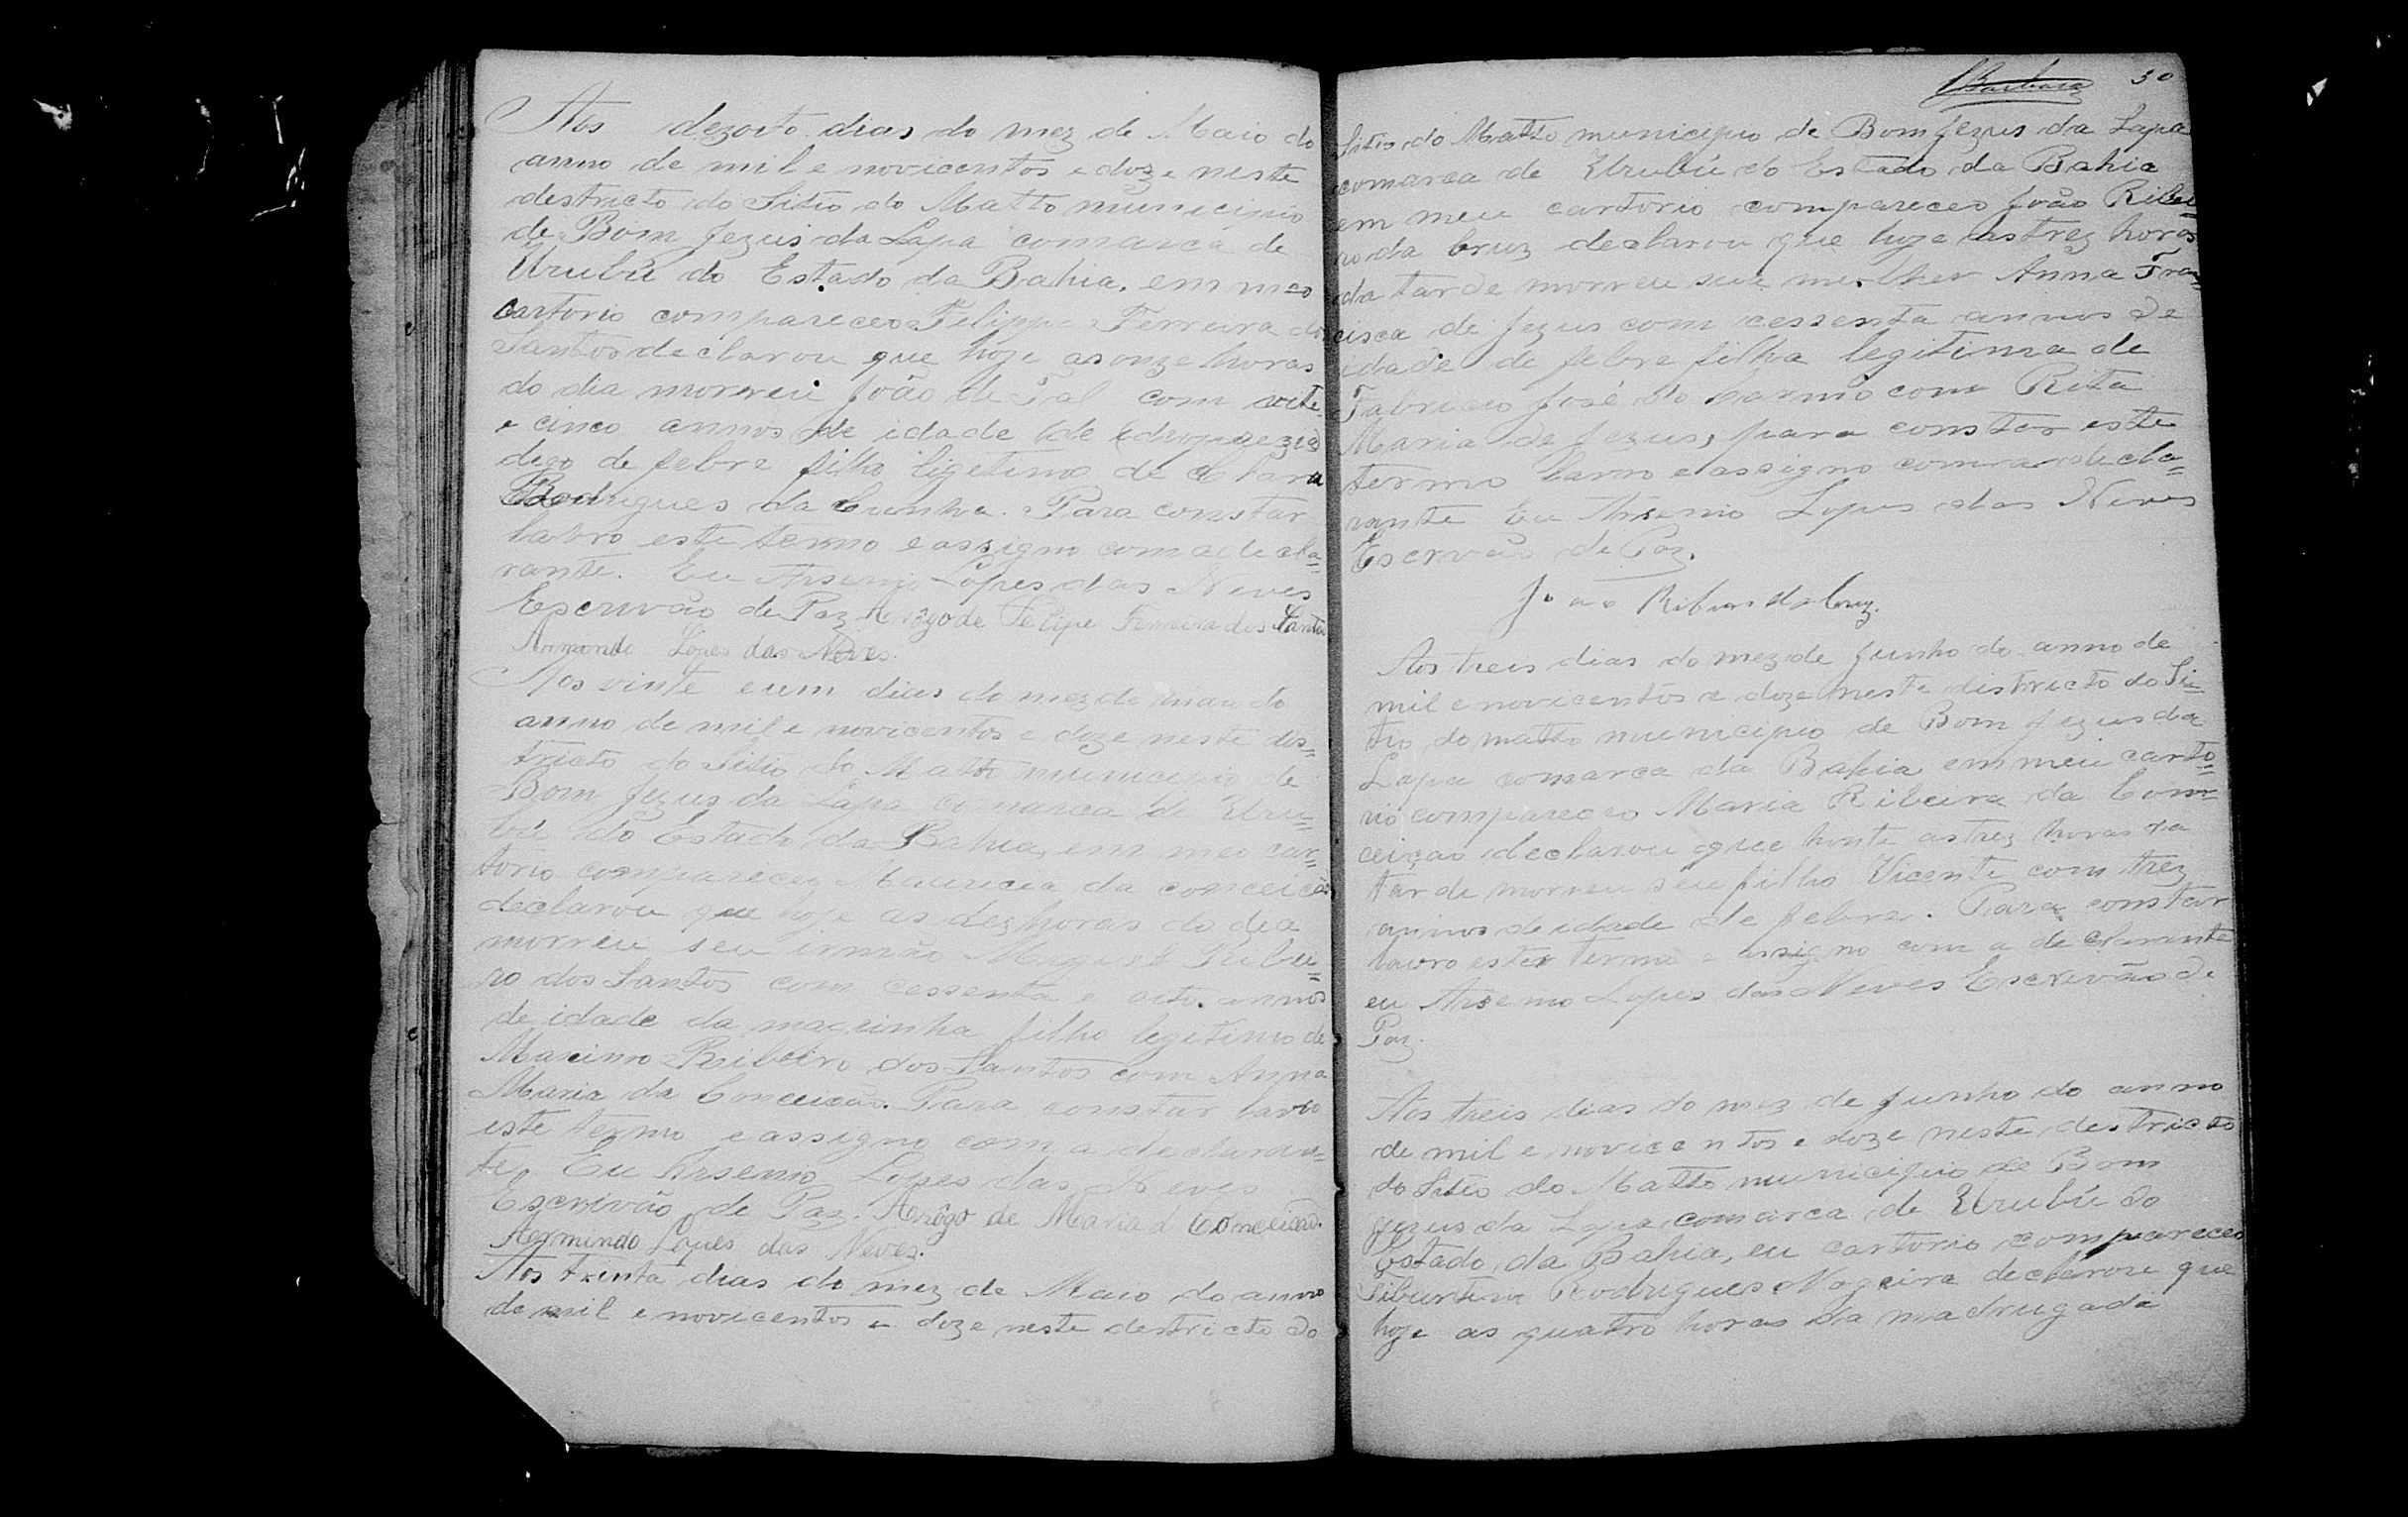 Aos dezoito dias do mez de Maio do
anno de mil e novicentos e doze neste
destricto do Sitio do Matto municipio
de Bom Jezus da Lapa comarca de
Urubú do Estado da Bahia, em meo
cartorio compareceo Felippe Ferreira dos
Santos declarou que hoje as onze horas
do dia morreu João de Tal com
e cinco annos de idade de
digo de febre filho ligetimo de Clara
Rodrigues da Cunha. Para constar
labro este termo e assigno com a decla=
rante. Eu Arsenio Lopes das Neves
Escrivão de Paz. Arôgo de Felipe Ferreira dos Santos
Armondo Lopes das Neves.
Aos vinte e um dias do mez de maio do
anno de mil e novicentos e doze neste dis=
tricto do Sitio do Matto municipio de
Bom Jezus da Lapa comarca de Uru=
bú do Estado da Bahia, em meo car=
torio compareceo Mauricia da conceição
declarou que hoje as dez horas do dia
morreu seu irmão Miguel Ribei=
ro dos Santos com cessenta e oito annos
de idade da maginha filho legitimo de
Maximo Ribeiro dos Santos com Anna
Maria da Conceicão. Para constar lavro
este termo e assigno com a declaran=
te. Eu Arsenio Lopes das Neves
Escrivão de Paz. Arôgo de Maria d Conceicão.
Armindo Lopes das Neves.
Aos trinta dias do mez de Maio do anno
de mil e novicentos e doze neste destricto do
Barbara 30
Sitio do Matto municipio de Bom Jezus da Lapa
comarca de Urubú do Estado da Bahia
em meu cartorio compareceo João Ribei=
ro da Cruz declarou que hoje as trez horas
da tarde morreu sua mulher Anna Fran=
cisca de Jezus com cessenta annos de
idade de febre filha legitima de
Fabricio José do Carmo com Rita
Maria de Jezus, para constar este
termo lavro e assigno com a decla=
rante Eu Arsenio Lopes das Neves
Escrvão de Paz.
João Ribeiro da Cruz.
Aos treis dias do mez de Junho do anno de
mil e novicentos e doze neste districto do Si=
tio do matto municipio de Bom Jezus da
Lapa comarca da Bahia em meu carto=
rio compareceo Maria Ribeira da Con=
ceiçao declarou que honte as trez horas da
tarde morreu seu filho Vicente com trez
annos de idade de febre. Para constar
lavro este termo e assigno com a declarante
eu Arsenio Lopes das Neves Escrivão de
Paz.
Aos treis dias do mez de Junho do anno
de mil e novicentos e doze neste destricto
do Sitio do Matto municipio de Bom
Jezus da Lapa, comarca de Urubú do
Estado da Bahia, eu cartorio compareceo
Tiburtino Rodrigues Nogeira declarou que
hoje as quatro horas da madrugada